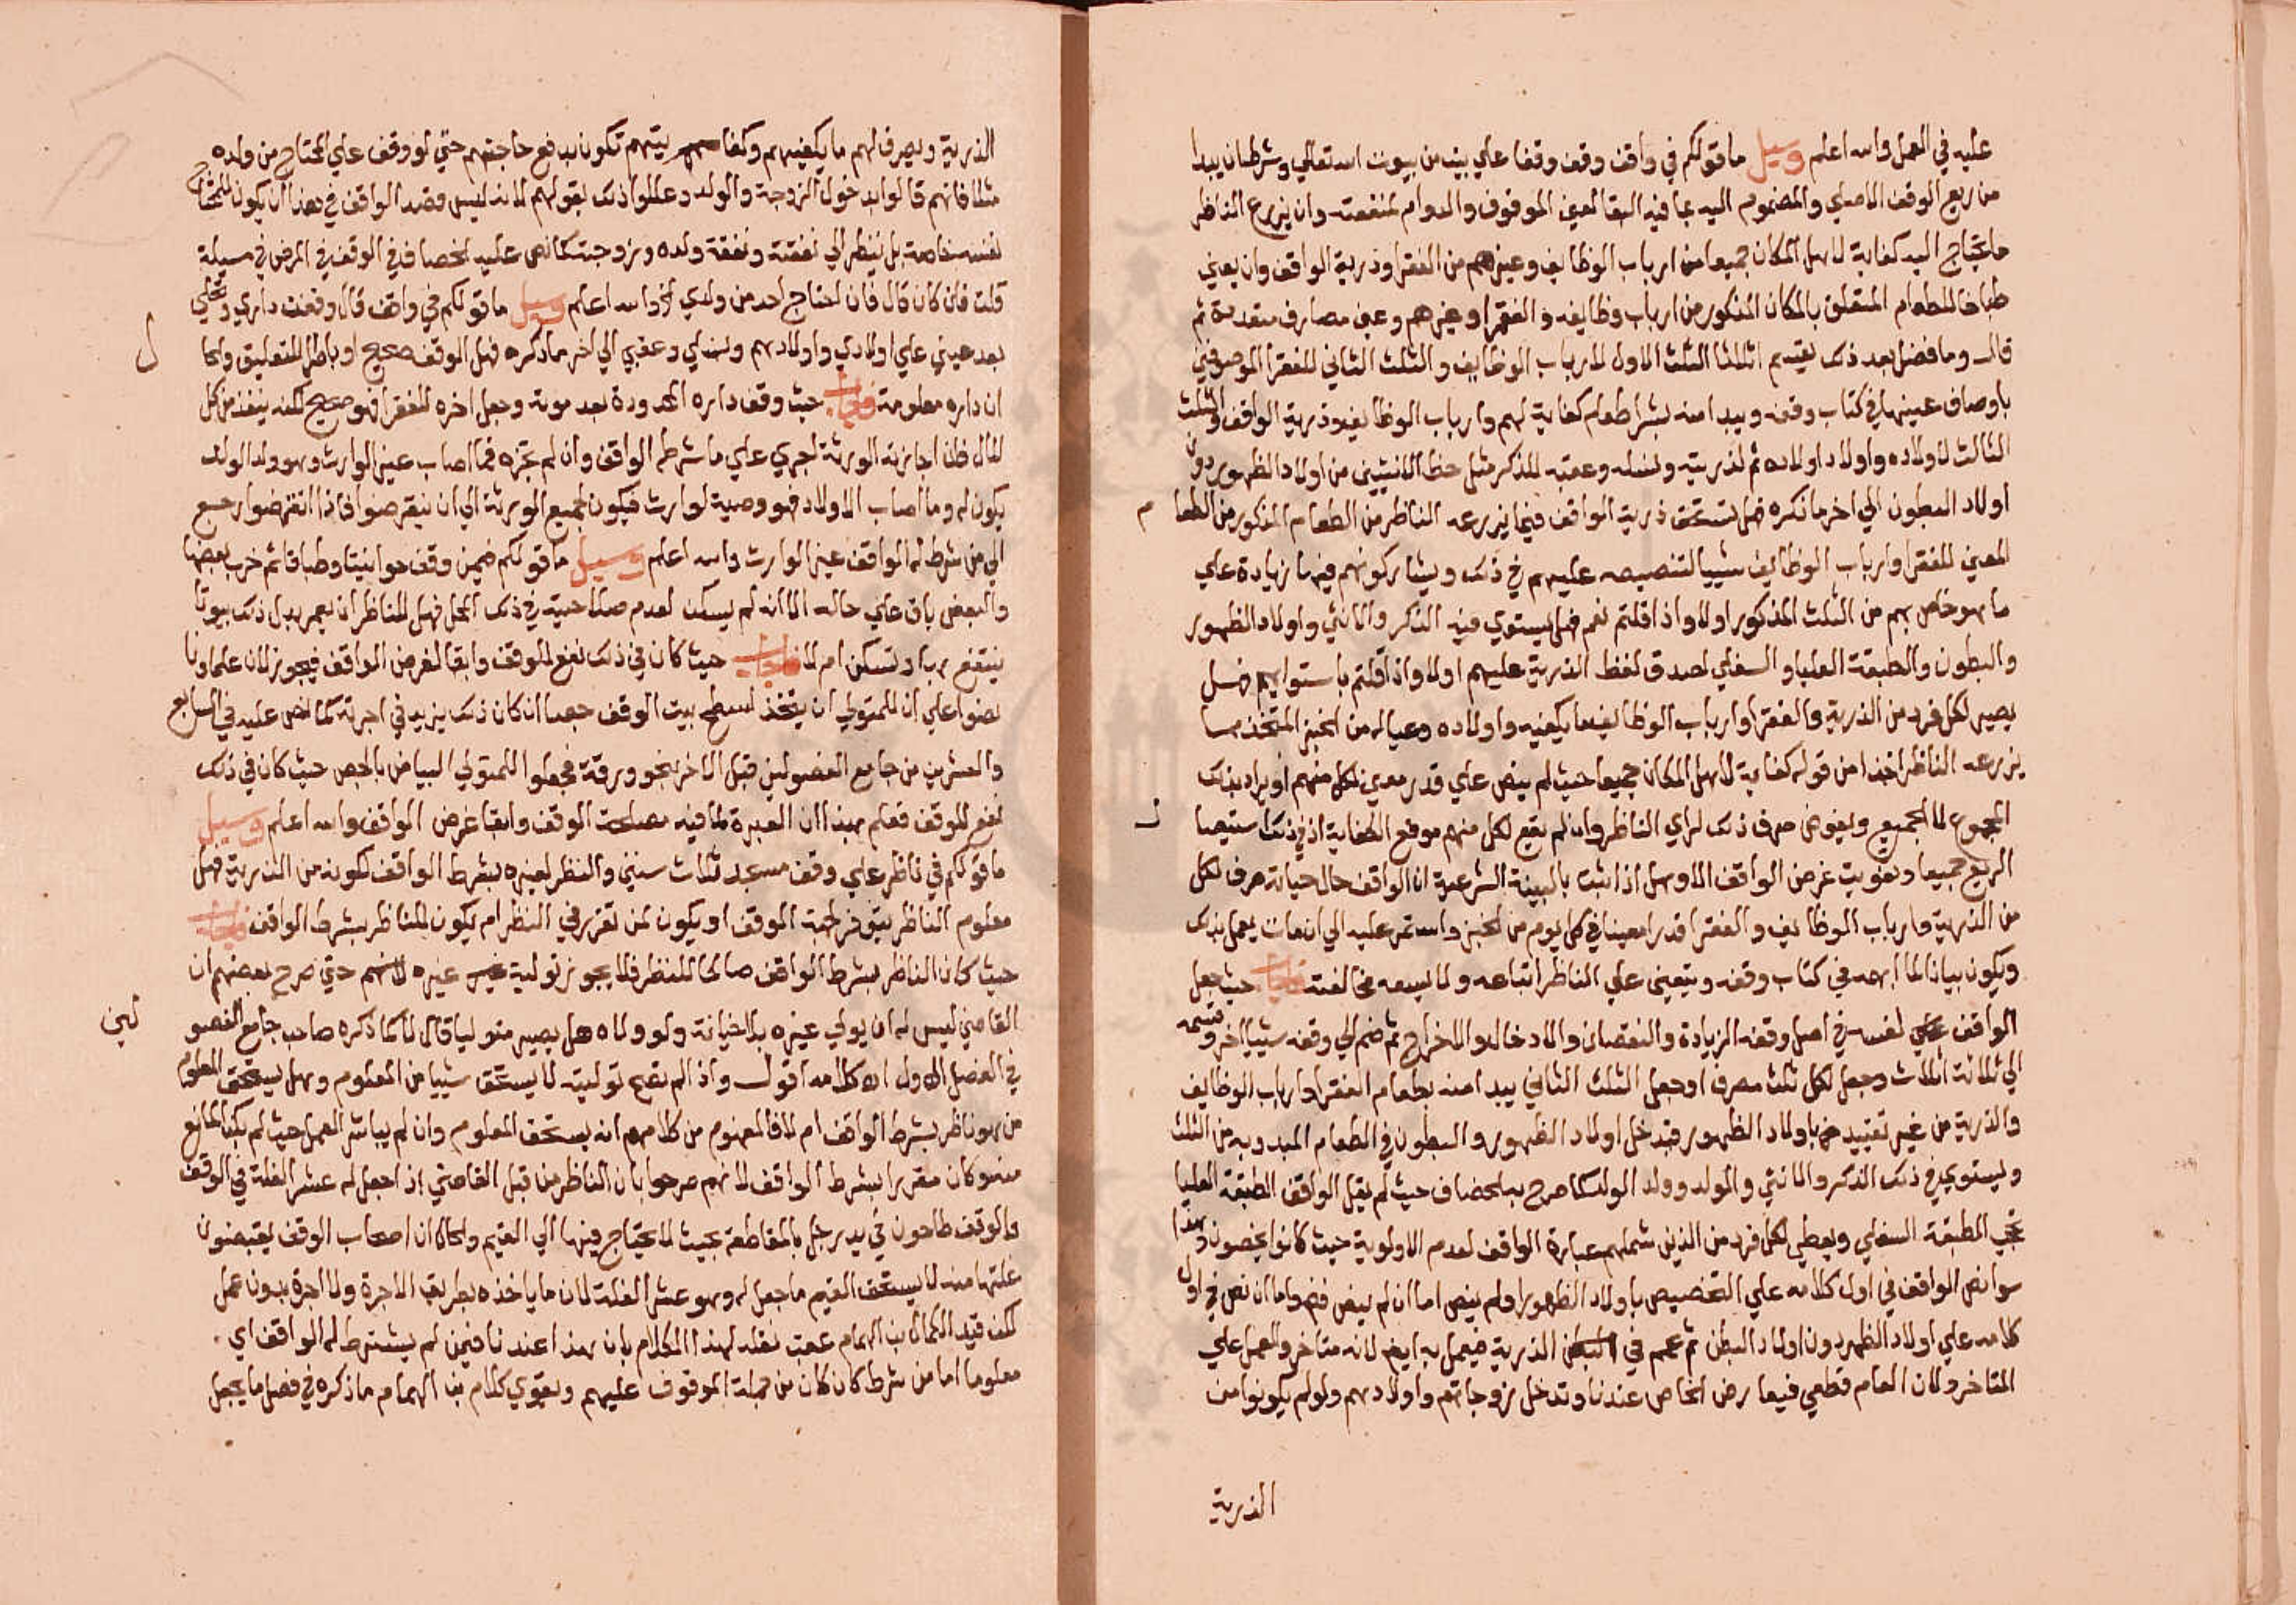 عليه في العمل والله اعلم وسيل ما قولكم في واقف وقف وقفا علي بيت من بيوت الله تعالي وشرط ان يبدا
من ريع الوقف الاصلي والمضموم اليه بما فيه البقا لعين الموقوف والدوام لمنفعته وان يزرع الناظر
ما يحتاج اليه كفاية لاهل المكان جميعا من ارباب الوظايف وغيرهم من الفقرا وذرية الواقف وان يعين
طباخا للطعام المتعلق بالمكان المذكور من ارباب وظايفه والفقرا وغيرهم وعين مصارف متعددة ثم
قال وما فضل بعد ذلك يقسم اثلاثا الثلث الاول لارباب الوظايف والثلث الثاني للفقرا الموصوفين
باوصاف عينها في كتاب وقفه ويبدا منه بشرا طعام كفاية لهم وارباب الوظايف وذرية الواقف والثلث
الثالث لاولاده واولاد اولاده ثم لذريته ونسله وعقبه للذكر مثل حظ الانثيين من اولاد الظهور دون
اولاد البطون الي اخر ما ذكره فهل يستحق ذرية الواقف فيما يزرعه الناظر من الطعام المذكور من الطعا م
المعين للفقرا وارباب الوظايف شييا لتنصيصه عليهم في ذلك ويشاركونهم فيها زيادة علي
ما هو خاص بهم من الثلث المذكور اولا واذا قلتم نعم فهل يستوي فيه الذكر والانثي واولاد الظهور
والبطون والطبقة العليا والسفلي لصدق لفظ الذرية عليهم اولا واذا قلتم باستوايهم فهل
يصير لكل فرد من الذرية والفقرا وارباب الوظايف ما يكفيه واولاده وعياله من الخبز المتخذ مما
يزرعه الناظر اخذا من قوله كفاية لاهل المكان جميعا حيث لم ينص علي قدر معين لكل منهم او يراد بذلك
المجموع لا الجميع ويفوض صرف ذلك لراي الناظر وان لم يقع لكل منهم موقع الكفاية اذ في ذلك استيعا ب
الريع جميعا وتفويت غرض الواقف الاوهل اذا ثبت بالبينة الشرعية ان الواقف حال حياته صرف لكل
من الذرية وارباب الوظايف والفقرا قدرا معينا في كل يوم من الخبز واستمر عليه الي ان مات يعمل بذلك
ويكون بيانا لما ابهمه في كتاب وقفه ويتعين علي الناظر اتباعه ولا يسعه مخالفته فاجاب حيث جعل
الواقف لنفسه في اصل وقفه الزيادة والنقصان والادخال والاخراج ثم ضم الي وقفه شييا اخر وقسمه
الي ثلاثة اثلاث وجعل لكل ثلث مصرفا وجعل الثلث الثاني يبدا منه بطعام الفقرا وارباب الوظايف
والذرية من غير تقييد باولاد الظهور فيدخل اولاد الظهور والبطون في الطعام المبدو به من الثلث
ويستوي في ذلك الذكر والانثي والولد وولد الولد كما صرح به الخصاف حيث لم يقل الواقف الطبقة العليا
تحجب الطبقة السفلي ويعطي لكل فرد من الذين شملهم عبارة الواقف لعدم الاولوية حيث كانوا يحصون وهذا
سوا نص الواقف في اول كلامه علي التخصيص باولاد الظهور او لم ينص اما ان لم ينص فنعم واما ان نص في اول
كلامه علي اولاد الظهر دون اولاد البطن ثم عمم في الذرية فيعمل به ايضا لانه متاخر والعمل علي
المتاخر ولان العام قطعي فيعارض الخاص عندنا وتدخل زوجاتهم واولادهم ولو لم يكونوا من
الذرية
الذرية ويصرف لهم ما يكفيهم وكفايتهم تكون بدفع حاجتهم حتي لو وقف علي المحتاج من ولده
مثلا فانهم قالوا بدخول الزوجة والولد وعللوا ذلك بقولهم لانه ليس قصد الواقف في هذا ان يكون للمحتاج
لنفسه خاصة بل ينظر الي نفقته ونفقة ولده وزوجته كما نص عليه الخصاف في الوقف في المرض في مسيلة
قلت فان كان قال فان احتاج احد من ولدي الخ والله اعلم وسيل ما قولكم في واقف قال وقفت داري ونخلي
بعد عيني علي اولادي واولادهم ونسلي وعقبي الي اخر ما ذكره فهل الوقف صحيح او باطل للتعليق والحا ل
ان داره معلومة فاجاب حيث وقف داره المحدودة بعد موته وجعل اخره للفقرا فهو صحيح لكنه ينفذ من كل
المال فان اجازته الورثة اجري علي ما شرطه الواقف وان لم تجزه فما اصاب غير الوارث وهو ولد الولد
يكون له وما اصاب الاولاد فهو وصية لوارث فيكون لجميع الورثة الي ان ينقرضوا فاذا انقرضوا رجع
الي من شرط له الواقف غير الوارث والله اعلم وسيل ما قولكم فيمن وقف حوانيتا وطباقا ثم خرب بعضها
والبعض باق علي حاله الا انه لم يسكن لعدم صلاحيته في ذلك المحل فهل للناظر ان يعمر بدل ذلك بيوتا
ينتفع بها وتسكن ام لا فاجاب حيث كان في ذلك نفع للوقف وابقا لغرض الواقف فيجوز لان علماونا
نصوا علي ان للمتولي ان يتخذ لسطح بيت الوقف حصا ان كان ذلك يزيد في اجرته كما نص عليه في السابع
والعشرين من جامع الفصولين قبل الاخر بنحو ورقة فجعلوا للمتولي البياض بالجص حيث كان في ذلك
نفع للوقف فعلم بهذا ان العبرة لما فيه مصلحة الوقف وابقا غرض الواقف والله اعلم وسيل
ما قولكم في ناظر علي وقف مسجد ثلاث سنين والنظر لغيره بشرط الواقف لكونه من الذرية فهل
معلوم الناظر يتوفر لجهة الوقف او يكون لمن تقرر في النظر ام يكون للناظر بشرط الواقف فاجاب
حيث كان الناظر بشرط الواقف صالحا للنظر فلا يجوز تولية غيره لانهم حتي صرح بعضهم ان
القاضي ليس له ان يولي غيره بلا خيانة ولو ولاه هل يصير متوليا قال لا كما ذكره صاحب جامع الفصو لين
في الفصل الاول اه كلامه اقول واذا لم تصح توليته لا يستحق شييا من المعلوم وهل يستحق المعلوم
من هو ناظر بشرط الواقف ام لا فالمفهوم من كلامهم انه يستحق المعلوم وان لم يباشر العمل حيث لم يكن المانع
منه وكان مقررا بشرط الواقف لانهم صرحوا بان الناظر من قبل القاضي اذا جعل له عشر الغلة في الوقف
والوقف طاحون في يد رجل بالمقاطعة بحيث لا يحتاج فيها الي القيم وانما كان اصحاب الوقف يقبضون
غلتها منه لا يستحق القيم ما جعل له وهو عشر الغلة لان ما ياخذه بطريق الاجرة ولا اجرة بدون عمل
لكن قيد الكمال بن الهمام عقب نقله لهذا الكلام بان هذا عندنا فيمن لم يشترط له الواقف اي
معلوما اما من شرط كان كان من جملة الموقوف عليهم ويقوي كلام بن الهمام ما ذكره في فصل ما يجعل